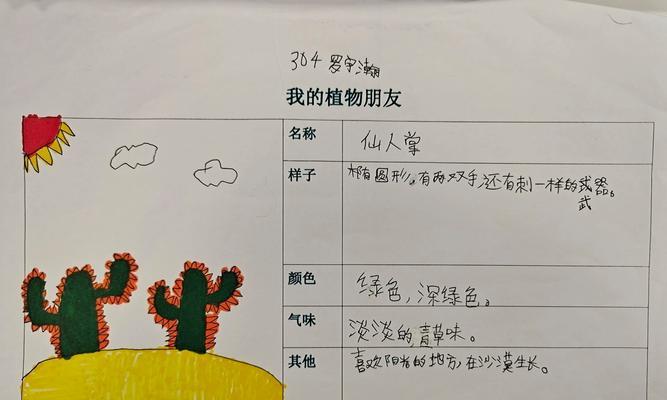 304 罗宇瀚
我的植物朋友
名称 仙人掌
样子 椭圆形。有两双手还有刺一样的武器。
武
颜色 绿色，深绿色。
气味 淡淡的青草味。
其他 喜欢阳光的地方，在沙漠生长。